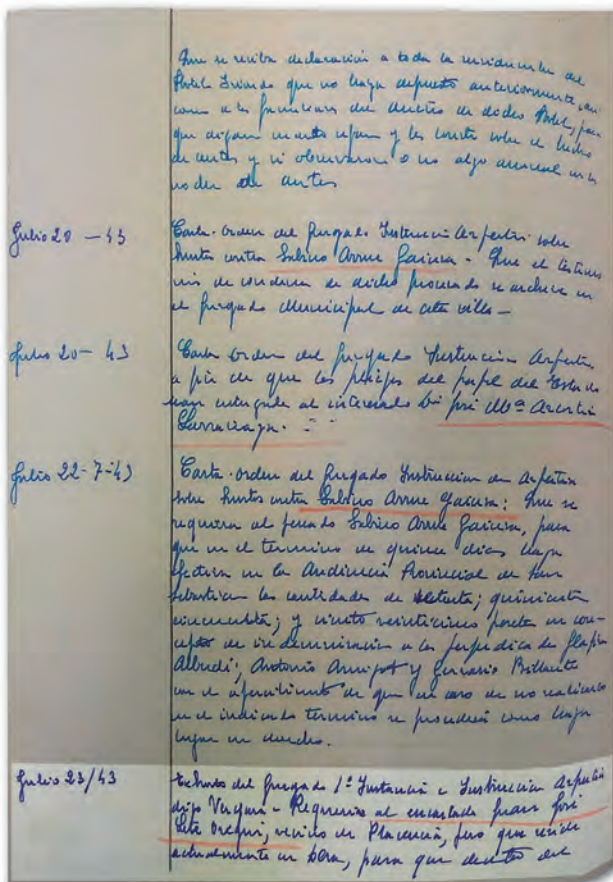 Que se reciba declaración a toda la residencia del
Hotel Izarda que no haya depuesto anteriormente, así
como a los familiares del dueño de dicho Hotel, para
que digan cuanto sepan y les conste sobre el hecho
de autos y si observaron o no algo anormal en la
noche de autos
Julio 20 - 43
Carta-orden del Juzgado Instrucción Azpeitia sobre
hurtos contra Sabino Arrue - Que el testimo
nio de condena de dicho procesado se archive en
el Juzgado Municipal de esta villa -
Julio 20 - 43
Carta orden del Juzgado Instrucción Azpeitia
a fin de que los pliegos del papel del Estado
sean entregados al interesado José Mª
Larrañaga.
Julio 22-7-43
Carta-orden del Juzgado Instruccion de Azpeitia
sobre hurtos contra Sabino Arrue: Que se
requiera al penado Sabino Arrue, para
que en el termino de quince dias haga
efectiva en la Audiencia Provincial de San
Sebastian las cantidades de setenta; quinientas
cincuenta; y ciento veinticinco pesetas en con-
cepto de indemnización a los perjudicados
Alberdi; Antonio y Gervasio
con el apercibimiento de que en caso de no realizarlo
en el indicado termino se procederá como haya
lugar en derecho.
Julio 23/43
Exhorto del Juzgado 1ª Instancia e Instrucción Azpeitia
digo Vergara - Requerir al encartado Juan José
Lete Oregui, vecino de Placencia, pero que reside
actualmente en, para que dentro del